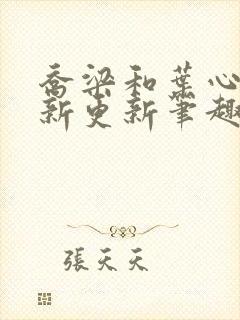 喬梁和葉心
新更新筆趣
張天天